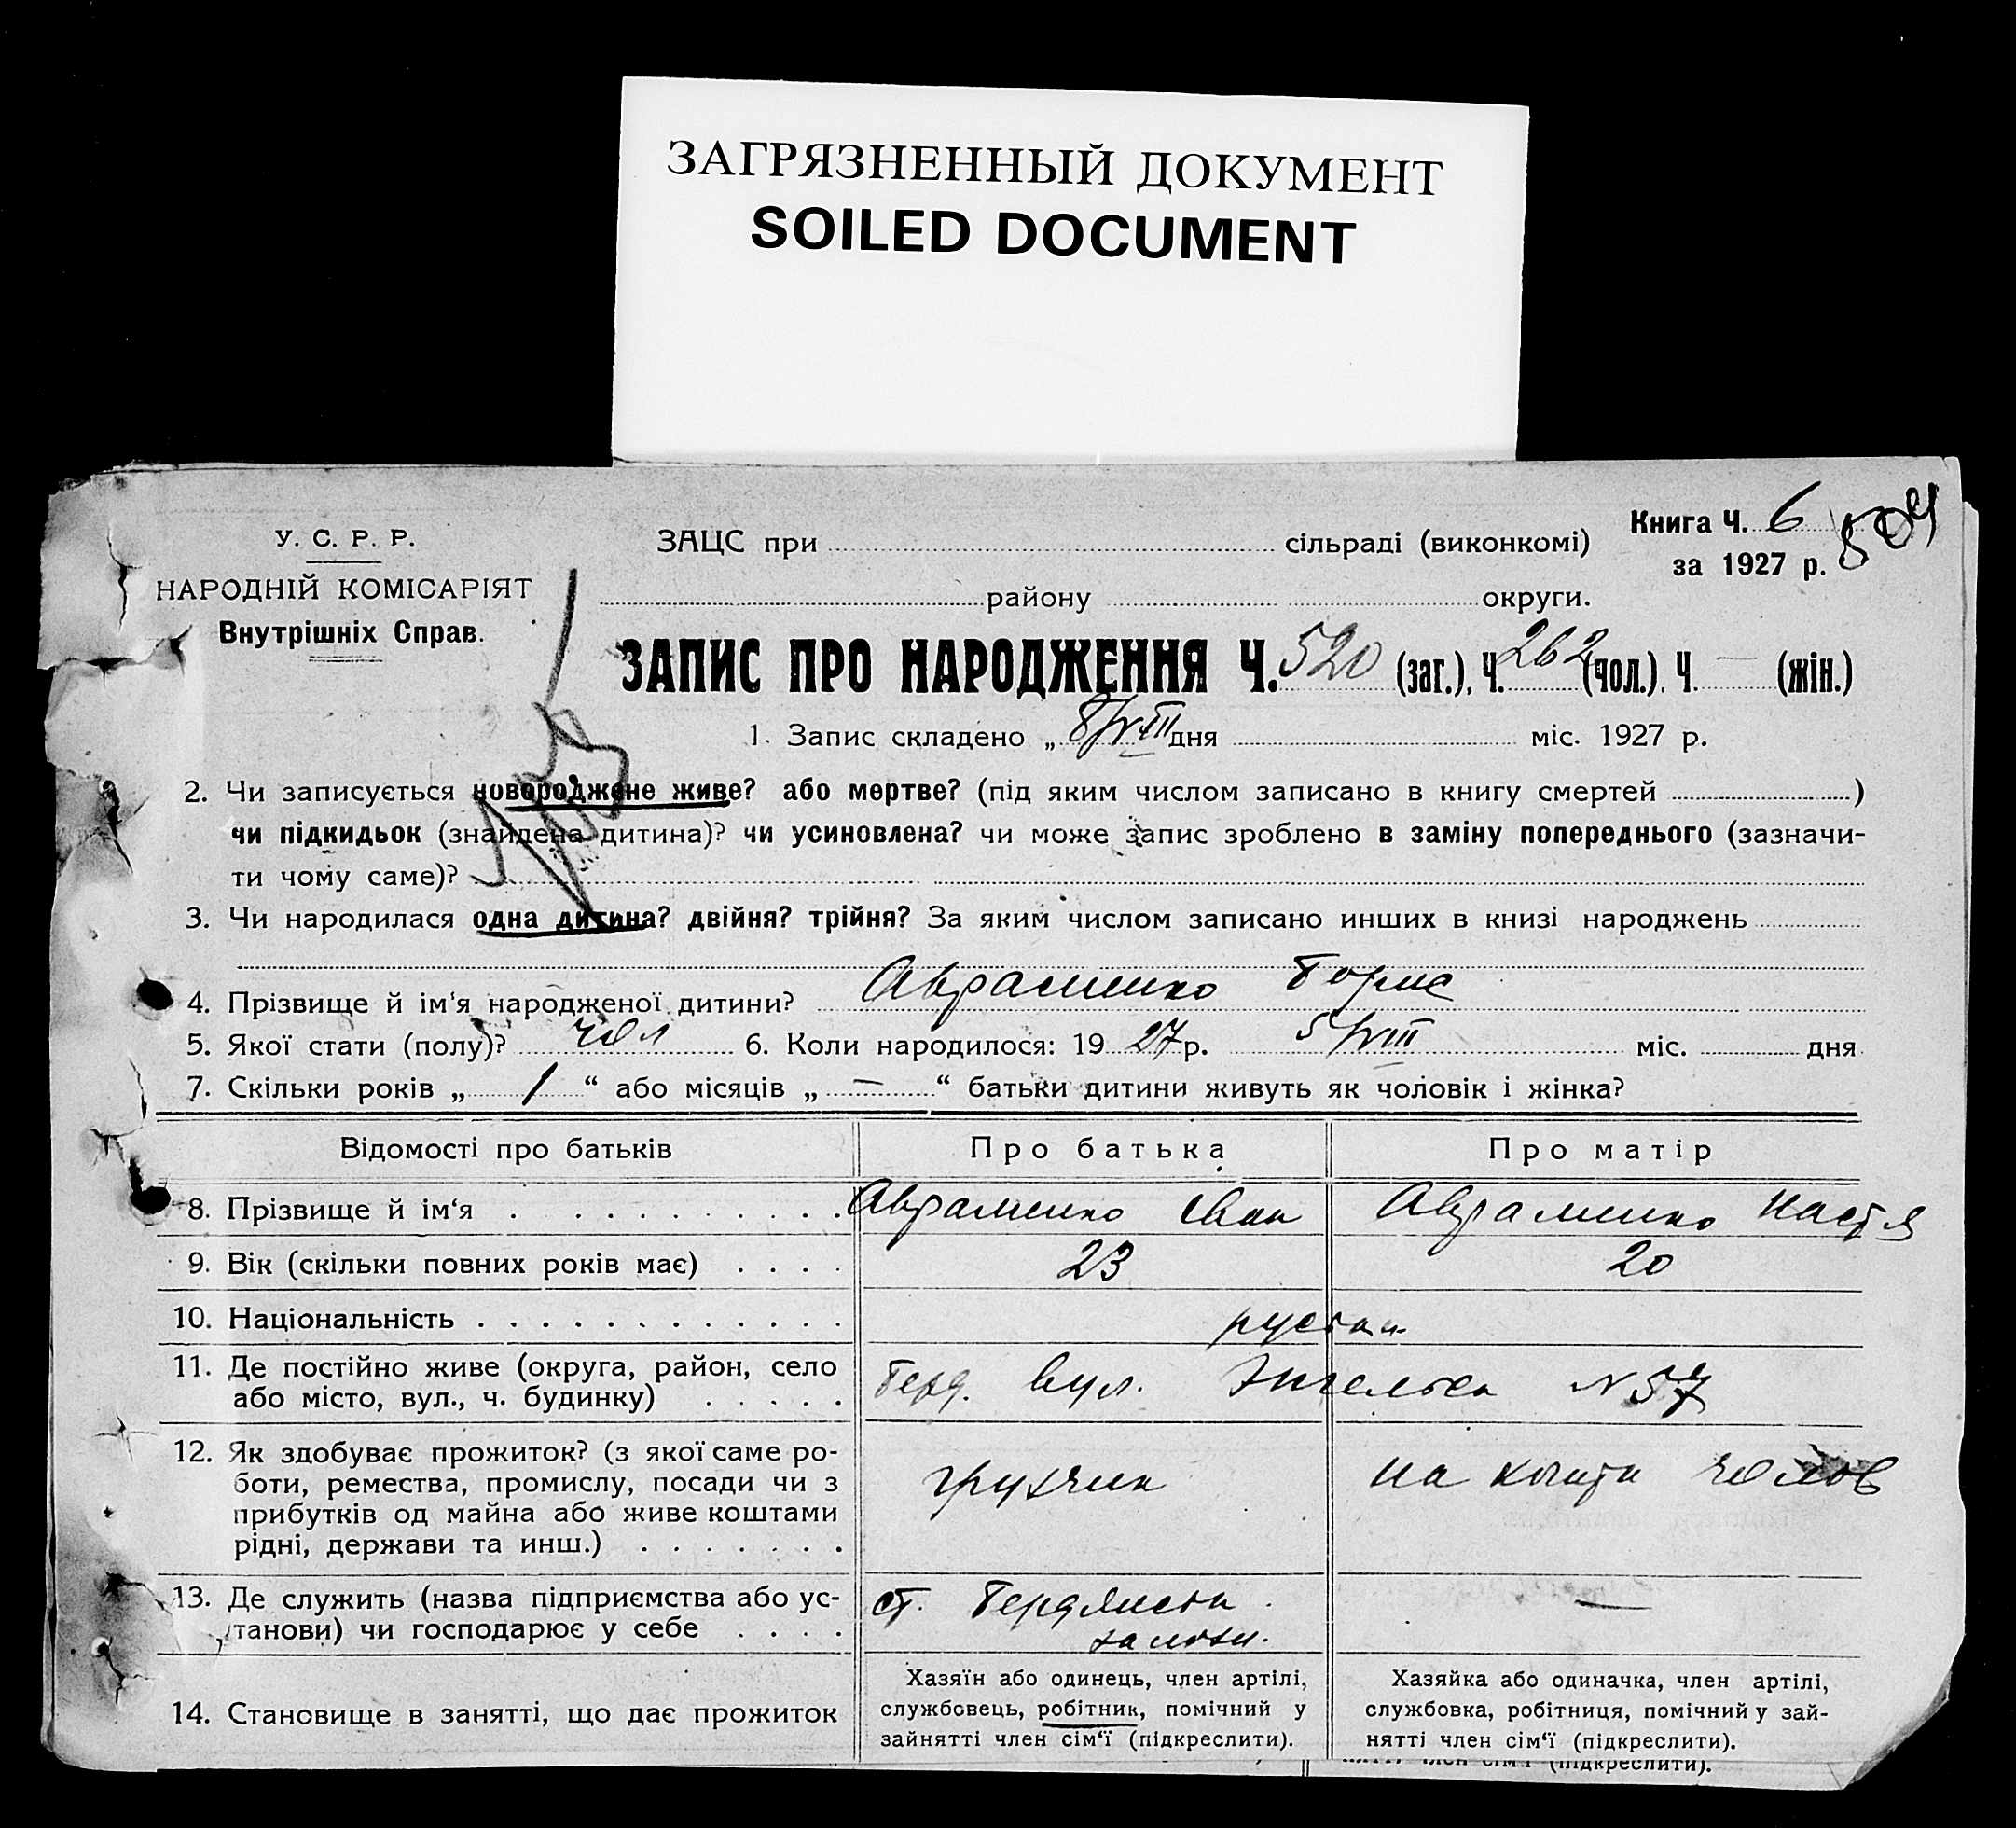 ЗАГРЯЗНЕННЫЙ ДОКУМЕНТ
SOILED DOCUMENT
Книга Ч. 6 504
за 1927 р.
У. С. Р. Р.
НАРОДНІЙ КОМІСАРІЯТ
Внутрішніх Справ.
ЗАЦС при сільраді (виконкомі)
району округи.
ЗАПИС ПРО НАРОДЖЕННЯ Ч. 520 (заг.), Ч. 262 (чол.). Ч. — (жін.)
1. Запис складено „ 8/VIII дня міс. 1927 р.
2. Чи записується новороджене живе? або мертве? (під яким числом записано в книгу смертей )
чи підкидьок (знайдена дитина)? чи усиновлена? чи може запис зроблено в заміну попереднього (зазначи-
ти чому саме)?
3. Чи народилася одна дитина? двійня? трійня? За яким числом записано инших в книзі народжень
4. Прізвище й ім'я народженої дитини? Авраменко Борис
5. Якої стати (полу)? чол 6. Коли народилося: 19 27 р. 5/VIII міс. дня
7. Скільки років „ 1 “ або місяців „ — “ батьки дитини живуть як чоловік і жінка?
Відомості про батьків Про батька Про матір
8. Прізвище й ім‘я Авраменко Іван Авраменко Настя
9. Вік (скільки повних років має) 23 20
10. Національність
11. Де постійно живе (округа, район, село
або місто, вул., ч. будинку) Берд. вул. Энгельса N 57
12. Як здобуває прожиток? (з якої саме ро-
боти, ремества, промислу, посади чи з
прибутків од майна або живе коштами
рідні, держави та инш.) грузчик на кошти чолов
13. Де служить (назва підприємства або ус-
танови) чи господарює у себе ст. Бердянськ —
14. Становище в занятті, що дає прожиток
Хазяїн або одинець, член артілі,
службовець, робітник, помічний у
зайнятті член сім‘ї (підкреслити).
Хазяйка або одиначка, член артілі,
службовка, робітниця, помічний у зай-
нятті член сім‘ї (підкреслити).
нятті член сім‘ї (підкреслити).